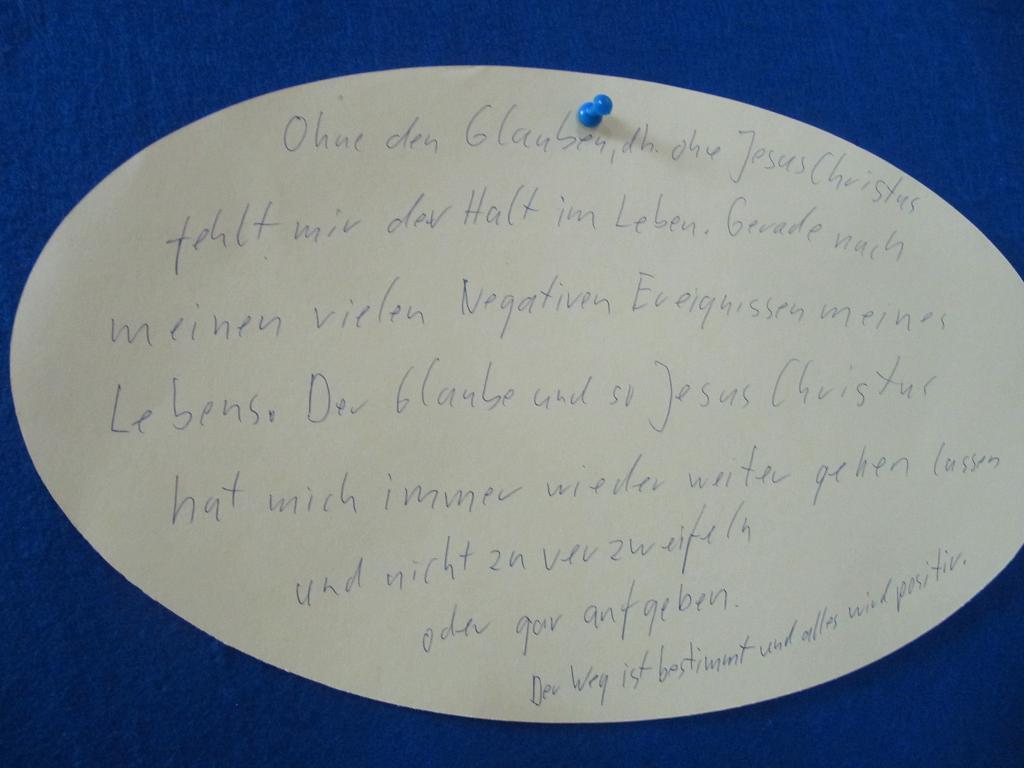 Ohne den Glauben, dh. ohne Jesus Christus
fehlt mir der Halt im Leben. Gerade nach
meinen vielen Negativen Ereignissen meines
Lebens. Der Glaube und so Jesus Christus
hat mich immer wieder weiter gehen lassen
und nicht zu verzweifeln
oder gar aufgeben.
Der Weg ist bestimmt und alles wird positiv.